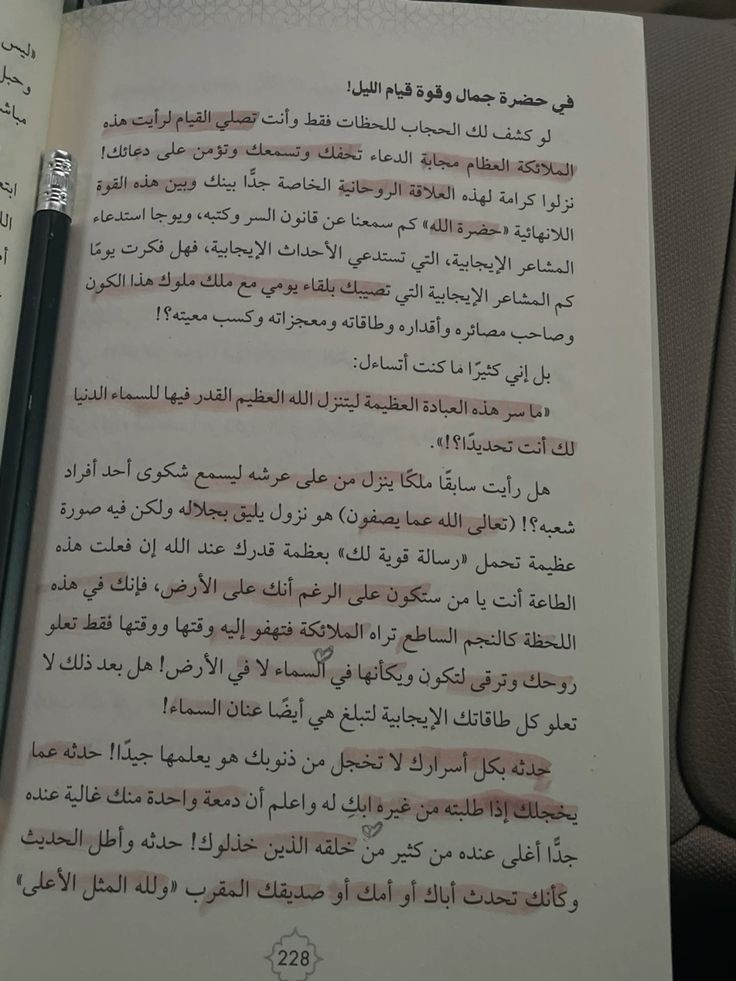 في حضرة جمال وقوة قيام الليل!
لو كشف لك الحجاب للحظات فقط وأنت تصلي القيام لرأيت هذه
الملائكة العظام مجابة الدعاء تحفك وتسمعك وتؤمن على دعائك!
نزلوا كرامة لهذه العلاقة الروحانية الخاصة جدًّا بينك وبين هذه القوة
اللانهائية «حضرة الله» كم سمعنا عن قانون السر وكتبه، ويوجا استدعاء
المشاعر الإيجابية، التي تستدعي الأحداث الإيجابية، فهل فكرت يومًا
كم المشاعر الإيجابية التي تصيبك بلقاء يومي مع ملك ملوك هذا الكون
وصاحب مصائره وأقداره وطاقاته ومعجزاته وكسب معيته؟!
بل إني كثيرًا ما كنت أتساءل:
«ما سر هذه العبادة العظيمة ليتنزل الله العظيم القدر فيها للسماء الدنيا
لك أنت تحديدًا؟!».
هل رأيت سابقًا ملكًا ينزل من على عرشه ليسمع شكوى أحد أفراد
شعبه؟! (تعالى الله عما يصفون) هو نزول يليق بجلاله ولكن فيه صورة
عظيمة تحمل «رسالة قوية لك» بعظمة قدرك عند الله إن فعلت هذه
الطاعة أنت يا من ستكون على الرغم أنك على الأرض، فإنك في هذه
اللحظة كالنجم الساطع تراه الملائكة فتهفو إليه وقتها ووقتها فقط تعلو
روحك وترقى لتكون ويكأنها في السماء لا في الأرض! هل بعد ذلك لا
تعلو كل طاقاتك الإيجابية لتبلغ هي أيضًا عنان السماء!
حدثه بكل أسرارك لا تخجل من ذنوبك هو يعلمها جيدًا! حدثه عما
يخجلك إذا طلبته من غيره ابكِ له واعلم أن دمعة واحدة منك غالية عنده
جدًّا أغلى عنده من كثير من خلقه الذين خذلوك! حدثه وأطل الحديث
وكأنك تحدث أباك أو أمك أو صديقك المقرب «ولله المثل الأعلى»
228
«ليس
وحبل
مباش
ابتع